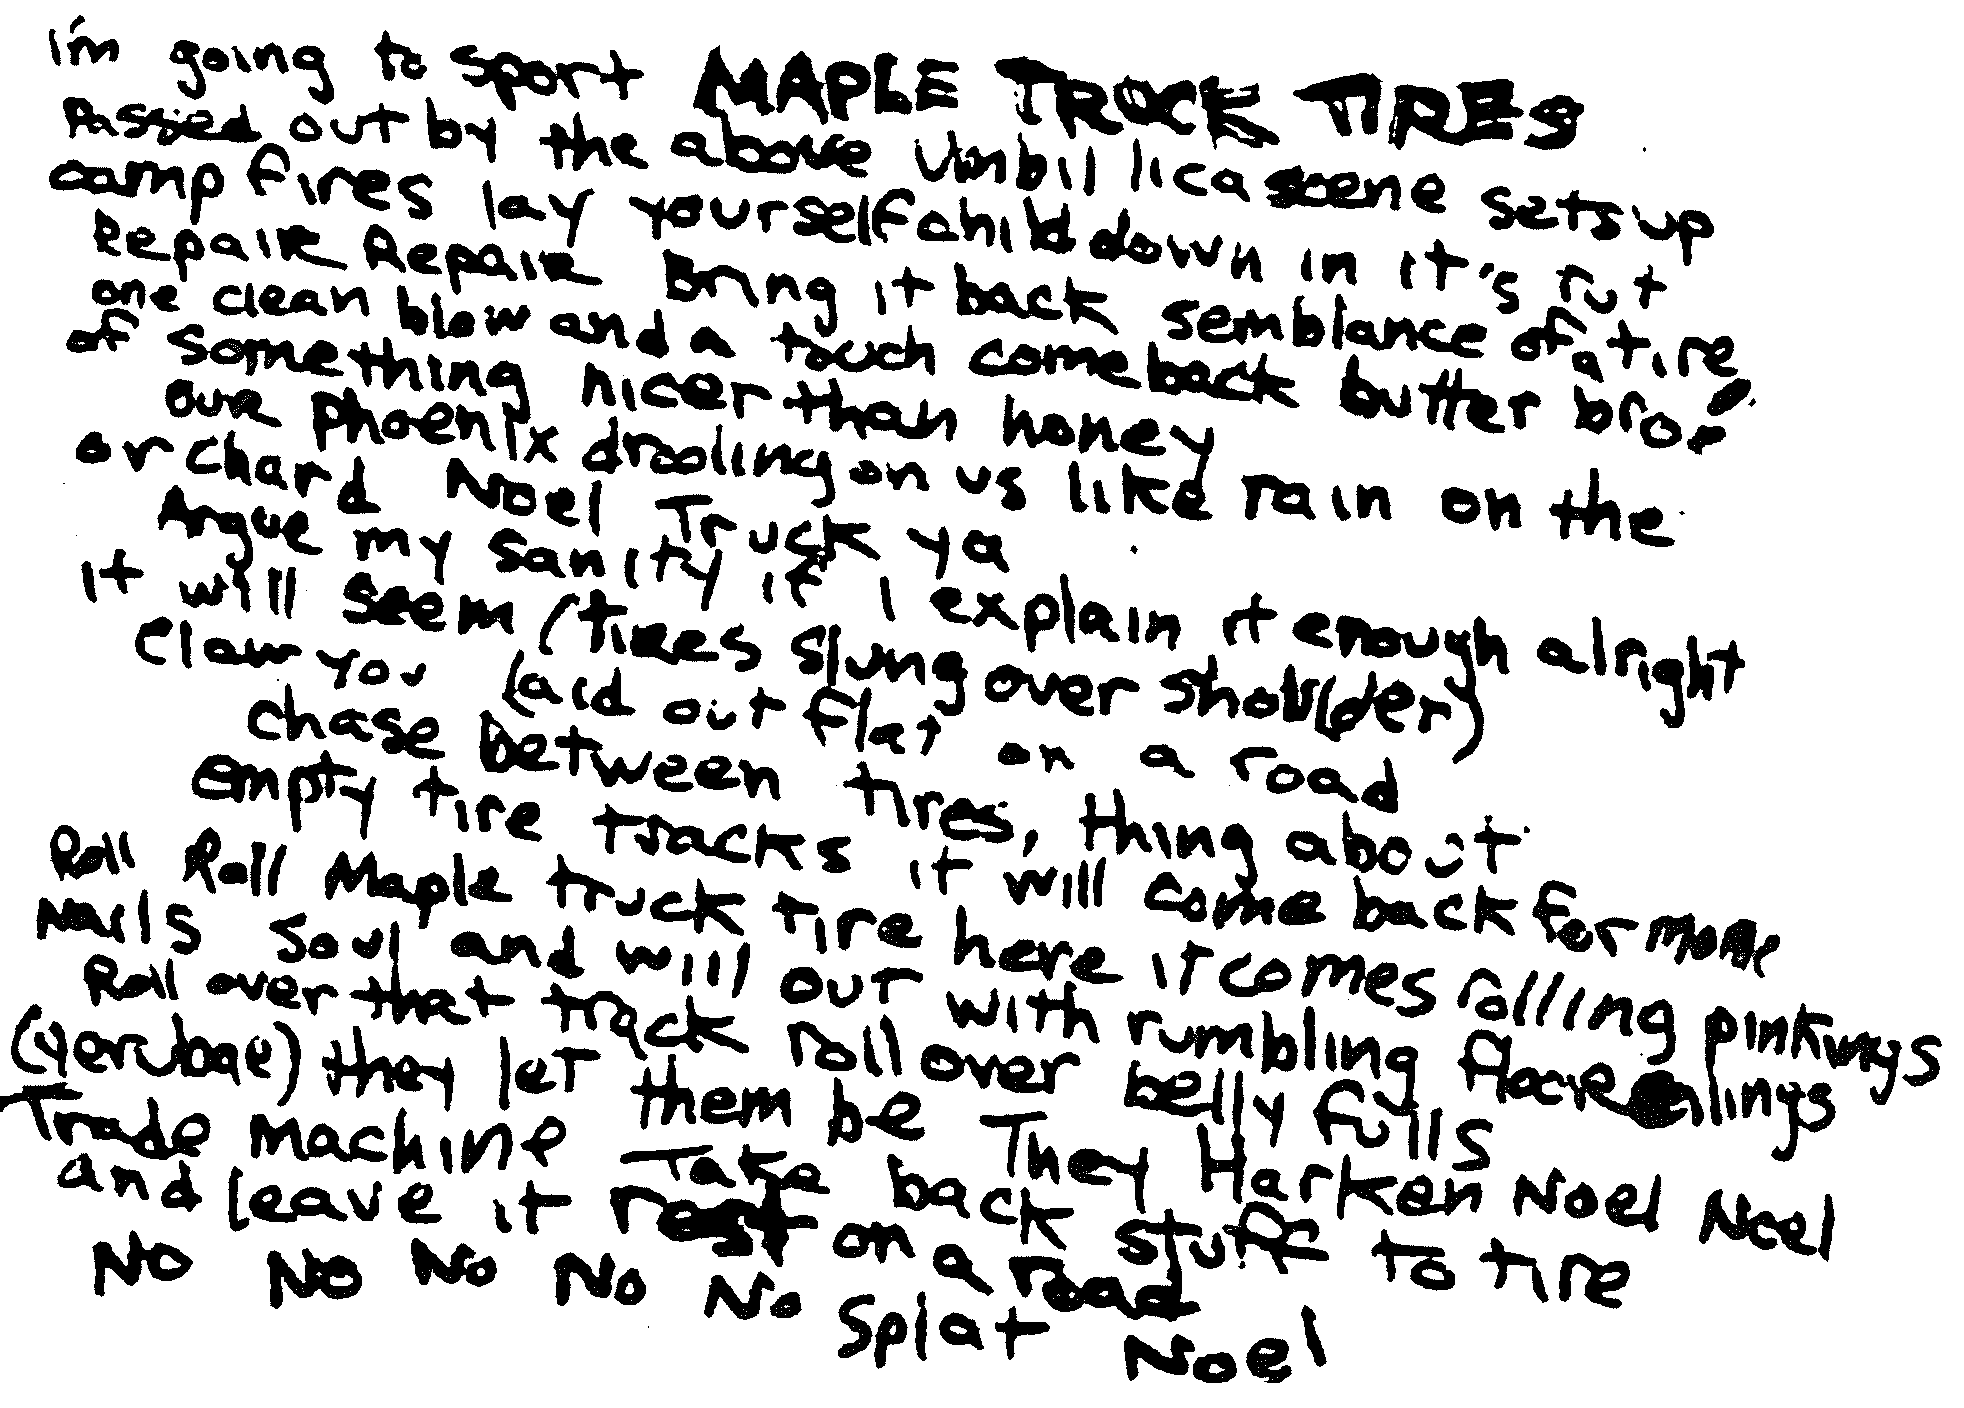 i'm going to sport MAPLE TRUCK TIRES
Passed out by the above Umbil lica scene sets up
camp fires lay yourself child down in it's rut
Repair Repair Bring it back semblance of a tire
one clean blow and a touch come back butter bro
of something nicer than honey
our phoenix drooling on us like rain on the
orchard Noel Truck ya
Argue my sanity if I explain it enough alright
it will seem (tires slung over shoulder)
Claw you laid out flat on a road
chase between tires, thing about
empty tire tracks it will come back for more
Roll Roll Maple truck tire here it comes rolling pinkinys
Nails soul and will out with rumbling
Roll over that track roll over belly fulls
(yerubae) they let them be They Harken Noel Noel
Trade machine Take back stuff to tire
and leave it rest on a road
NO NO NO NO NO Splat Noel